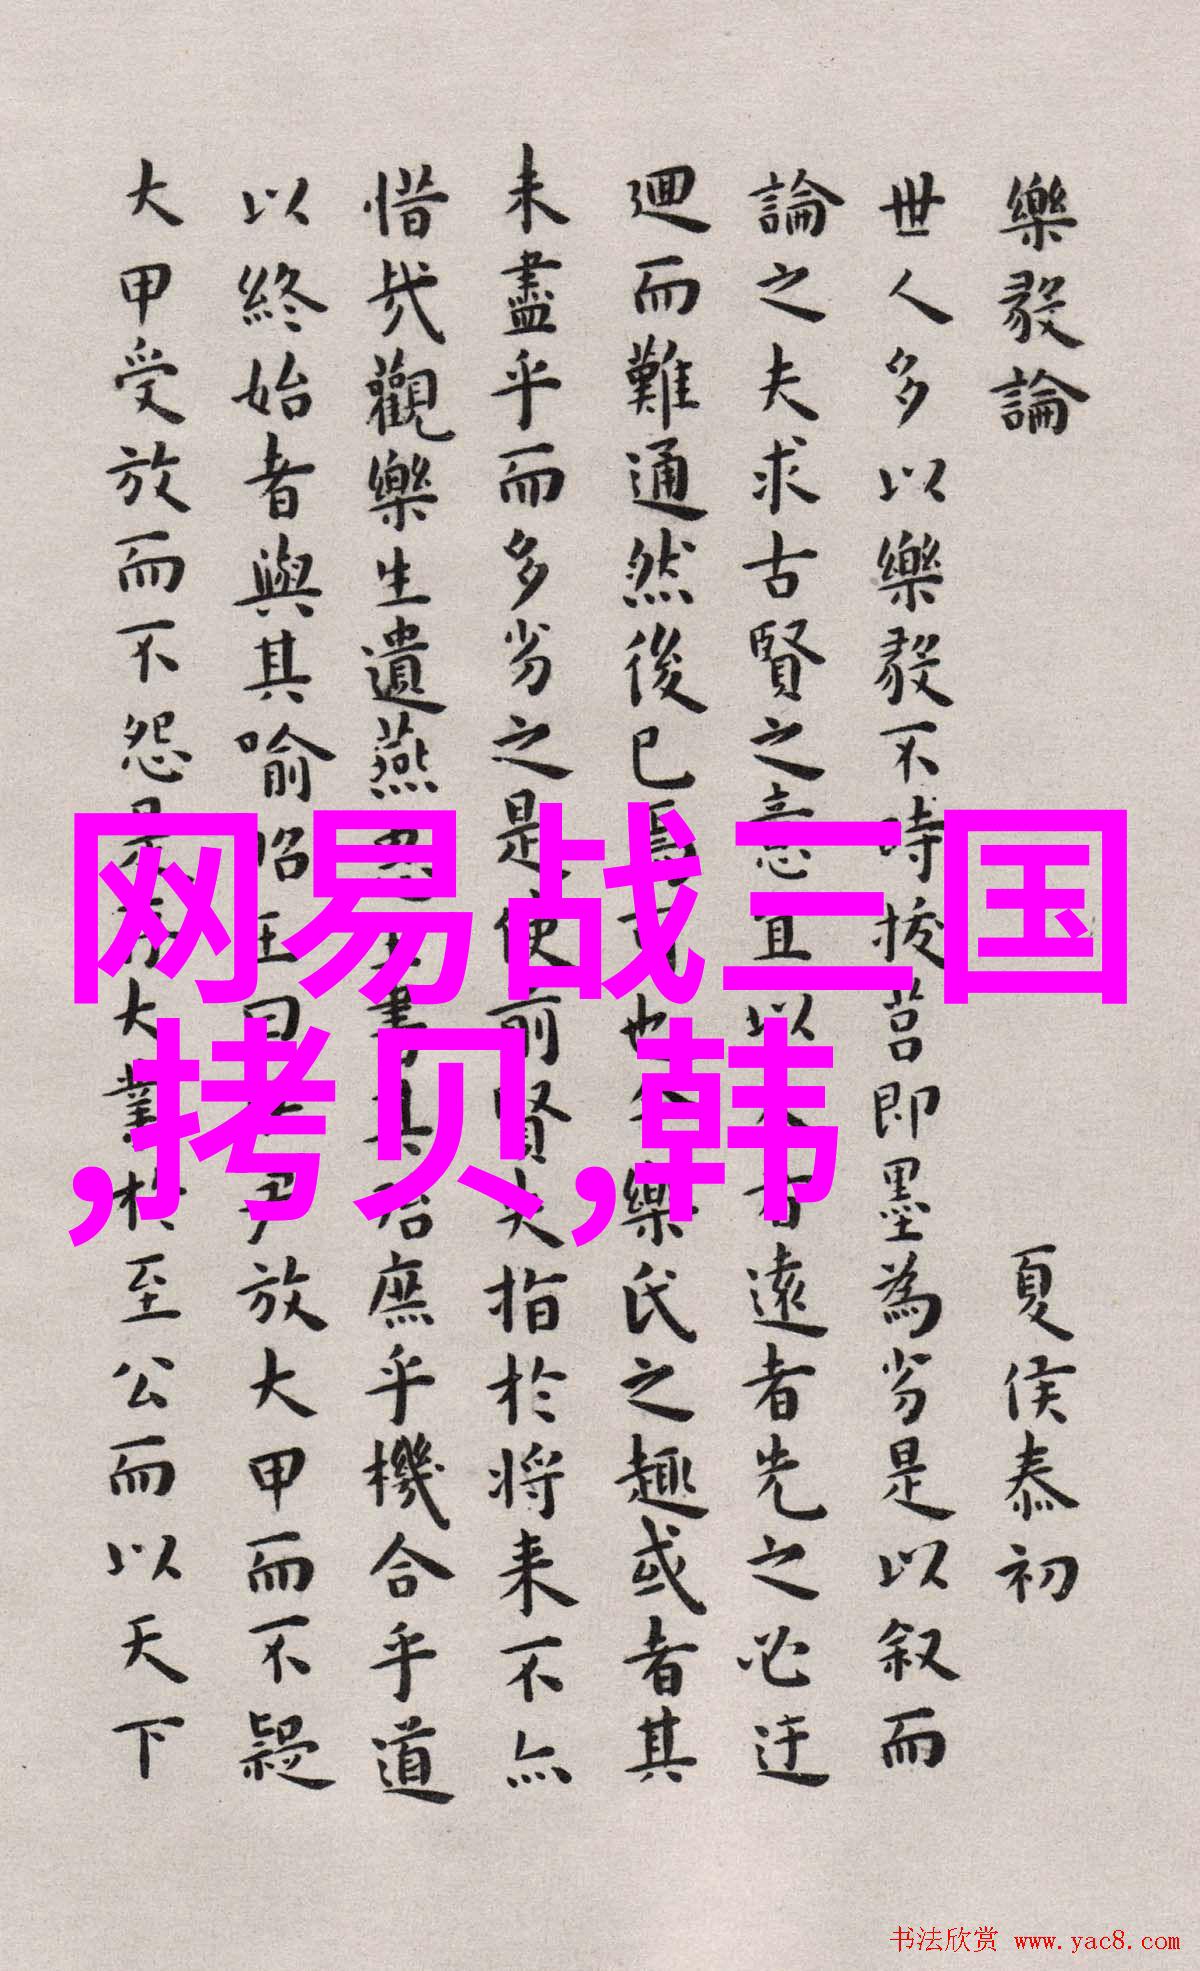 樂毅論
夏侯泰初
世人多以樂毅不時拔莒即墨為劣是以叙而
論之夫求古賢之意宜以遠者先之必迂
迴而難通然後已焉可也樂氏之趣或者其
未盡乎而多劣之是使前賢失指於將来不亦
惜哉觀樂生遺燕惠王書其殆庶乎機合乎道
以終始者與其喻昭王曰伊尹放大甲而不疑
大甲受放而不怨是存大業於至公而以天下
网易战三国
,拷贝,韩
书法欣赏 www.yac8.com